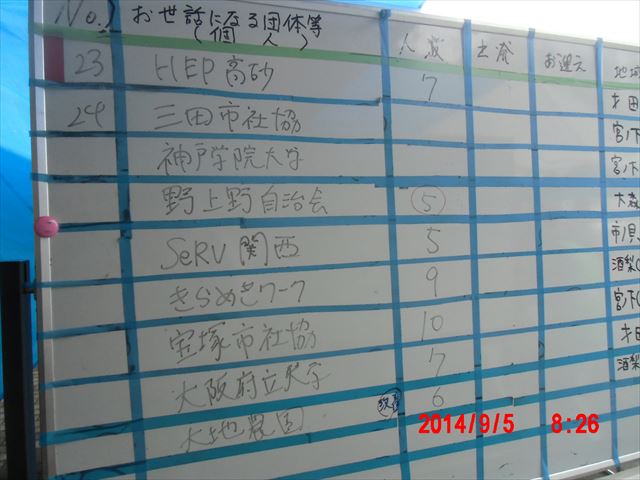 No.2 お世話になる団体等
(個人) 人数 出発 お迎え 地域
23 HEP高砂 7 才田
24 三田市社協 宮ノ下
神戸学院大学 宮ノ下
野上野自治会 5 大森
SeRV関西 5 市ノ貝
きらめきワーク 9 酒梨(
宝塚市社協 10 宮下(
大阪府立大学 7 才田
大地農園 6 酒梨
2014/9/5 8:26